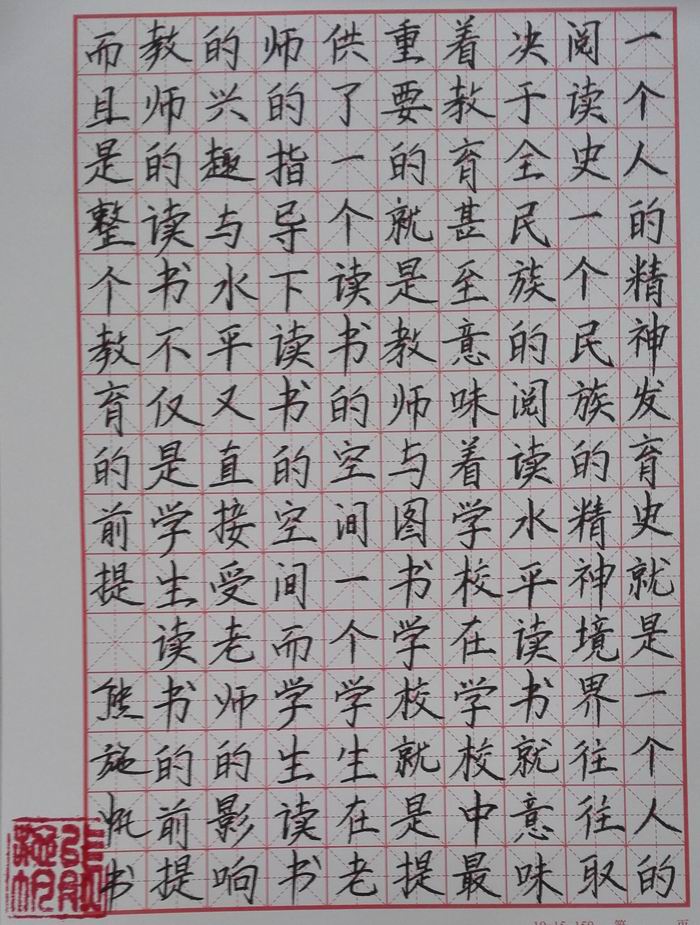 一个人的精神发育史就是一个人的
阅读史一个民族的精神境界往往取
决于全民族的阅读水平读书就意味
着教育甚至意味着学校在学校中最
重要的就是教师与图书学校就是提
供了一个读书的空间一个学生在老
师的指导下读书的空间而学生读书
的兴趣与水平又直接受老师的影响
教师的读书不仅是学生读书的前提
而且是整个教育的前提 熊施帆书